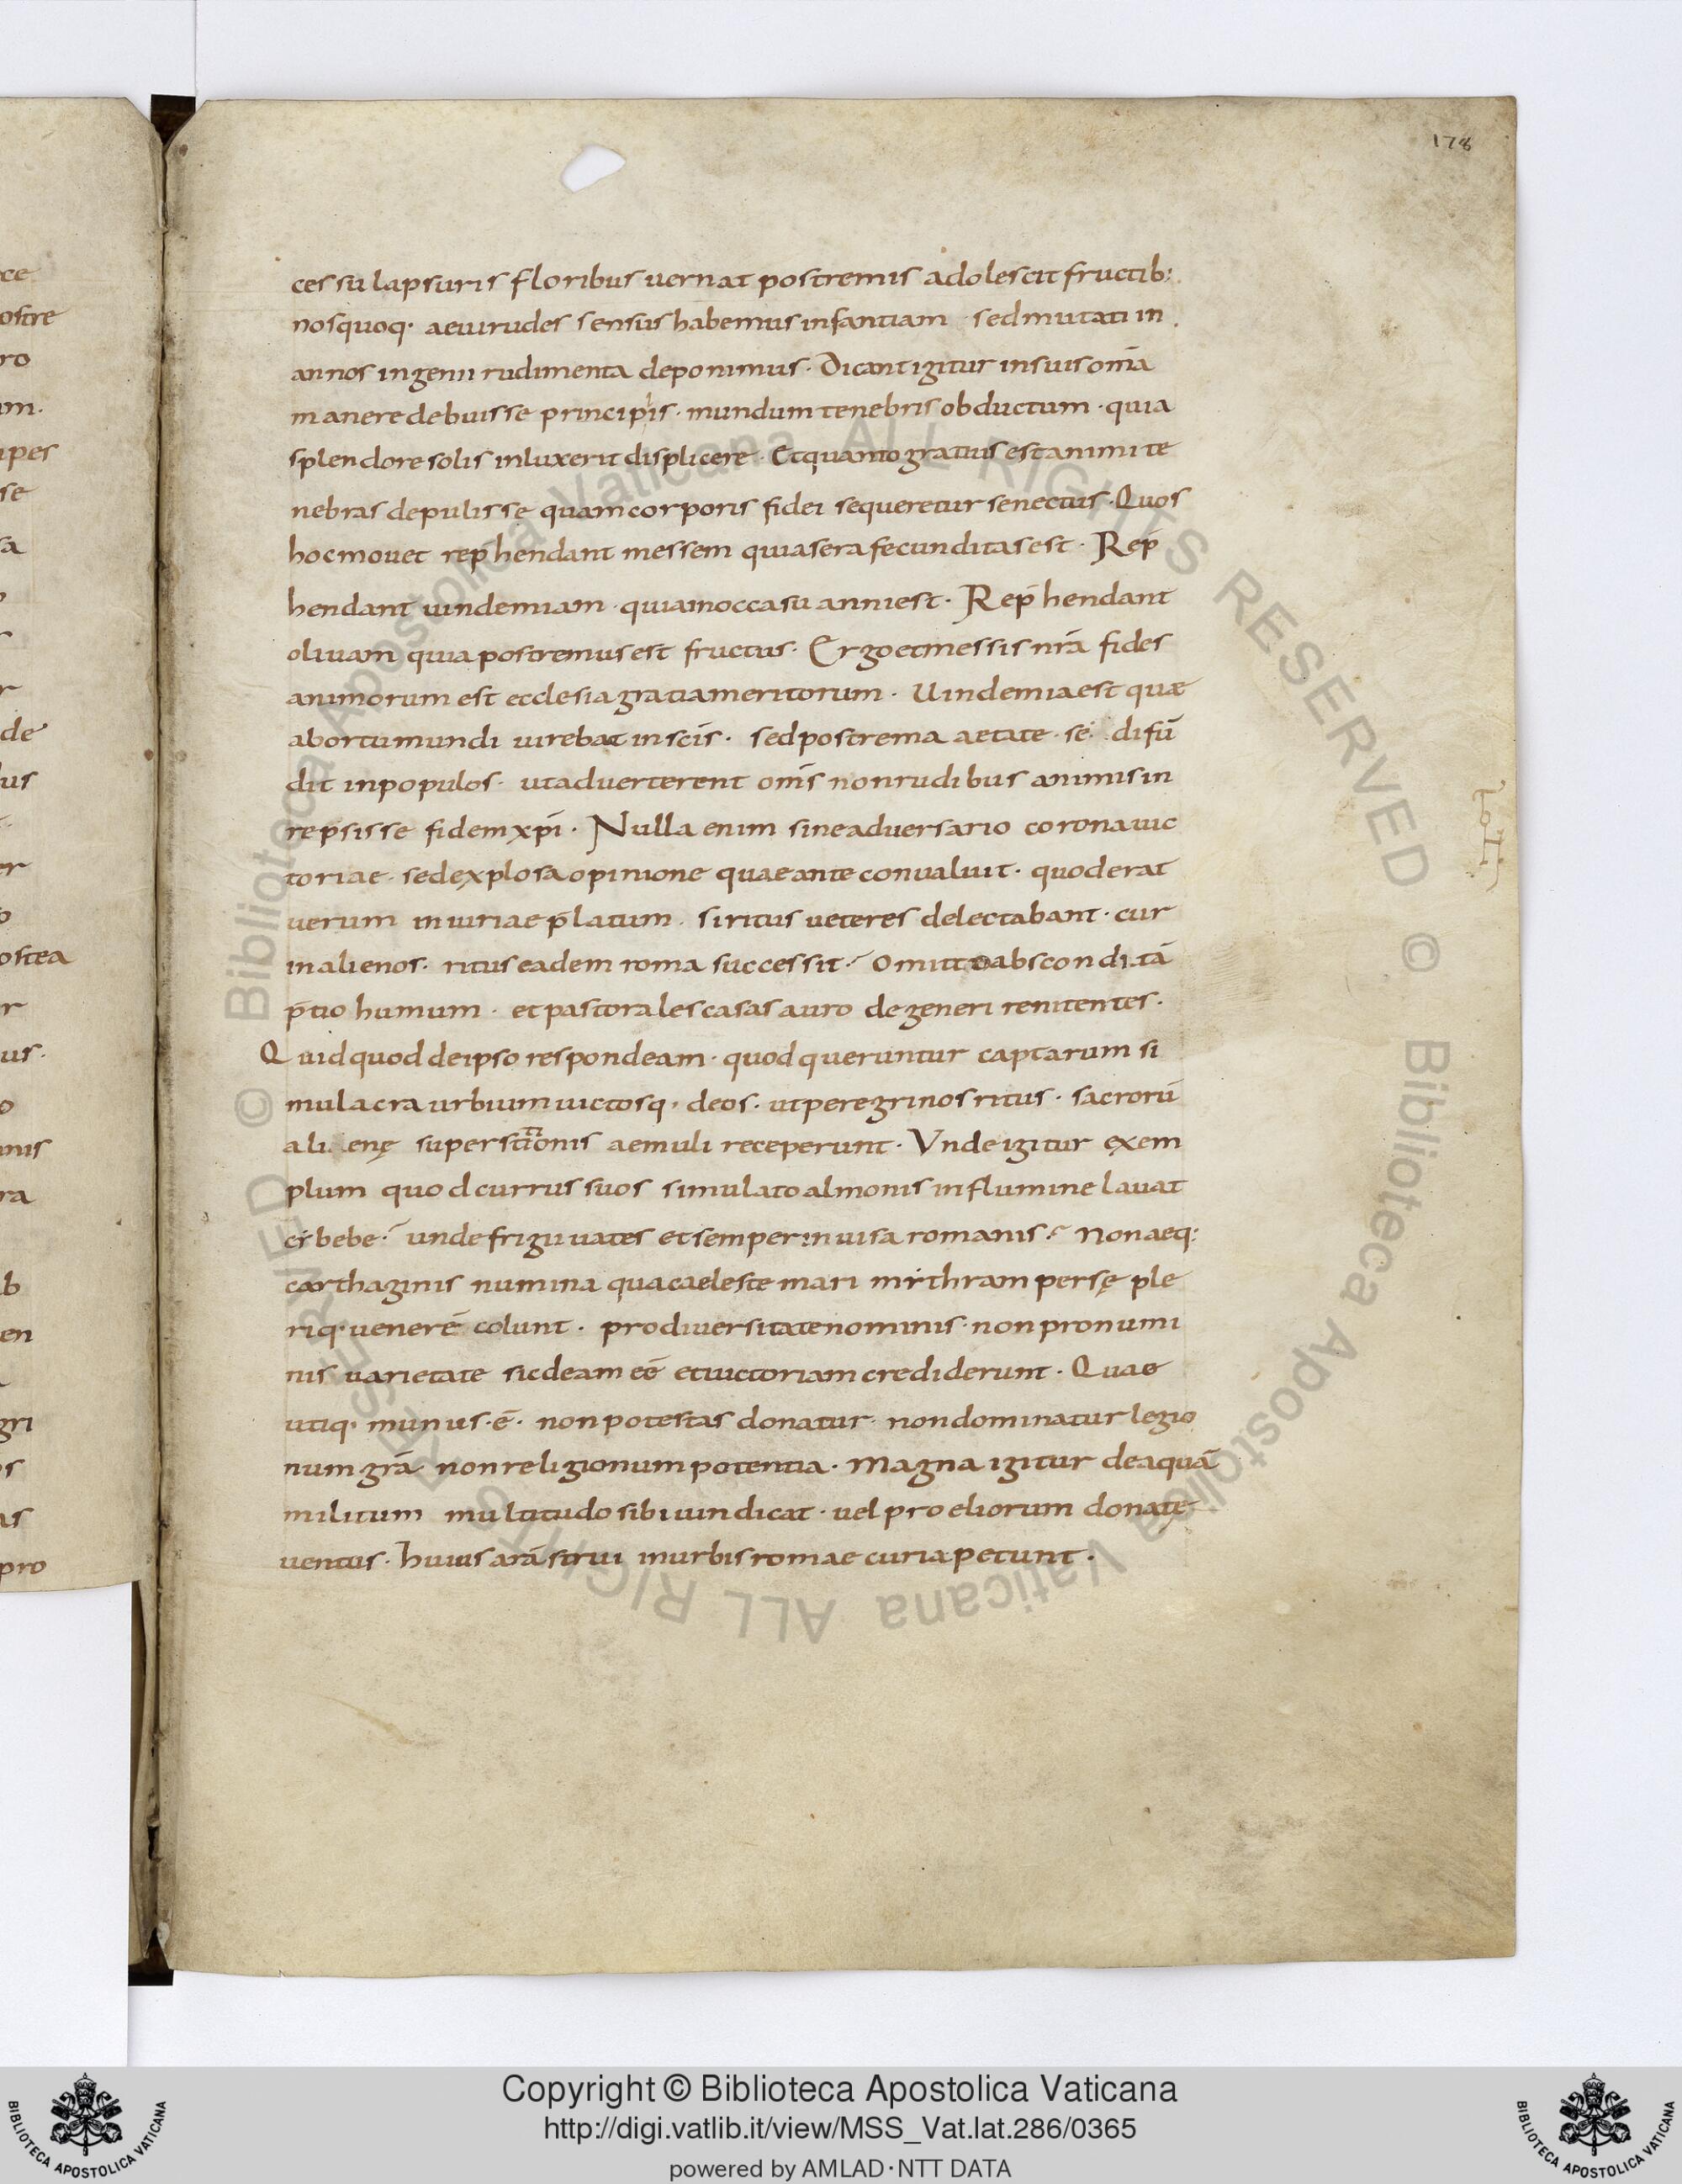 178
cessu lapsuris floribus uernat postremis adolescit fructib;
nos quoq· aeui rudes sensus habemus infantiam · sed mutati in
annos ingenii rudimenta deponimus · Dicant igitur in suis om̅a
manere debuisse principiis · mundum tenebris obductum · quia
splendore solis inluxerit displicere · Et quanto gratius est animi te
nebras depulisse quam corporis fidei sequeretur senectus · Quos
hoc mouet rep̅hendant messem quia sera fecunditas est · Rep̅
hendant uindemiam · quia in occasu anni est · Rep̅hendant
oliuam quia postremus est fructus · Ergo et messis nr̅a fides
animorum est ecclesia gratia meritorum · Uindemia est quae
ab ortu mundi uirebat in sc̅is · sed postrema aetate · se · difu̅
dit in populos · ut aduerterent om̅s non rudibus animis in
repsisse fidem xp̅i · Nulla enim sine aduersario corona uic
toriae · sed explosa opinione quae ante conualuit · quod erat
uerum in iuriae p̅latum · si ritus ueteres delectabant · cur
in alienos · ritus eadem roma successit? Omitto abscondita̅
p̅tio humum · et pastorales casas auro degeneri renitentes ·
Quid quod de ipso respondeam · quod queruntur captarum si
mulacra urbium uictosq· deos · ut peregrinos ritus · sacroru̅
alienę superstitionis aemuli receperunt · Vnde igitur exem
plum quod currus suos simulato almonis in flumine lauat
cibebe? unde frigii uates et semper inuisa romanis? Non aeq:
carthaginis numina qua caeleste mari mithram persę ple
riq· uenere̅ colunt · pro diuersitate nominis · non pro numi
nis uarietate sic deam ee̅ et uictoriam crediderunt · Quae
utiq· munus · e̅ · non potestas donatur · non dominatur legio
num gr̅a non religionum potentia · Magna igitur dea qua̅
militum multitudo sibi uindicat · uel proeliorum donat e
uentus · huius ara̅ strui in urbis romae curia petunt ·
© Biblioteca Apostolica Vaticana ALL RIGHTS RESERVED © Biblioteca Apostolica Vaticana ALL RIGHTS RESERVED
BIBLIOTECA APOSTOLICA VATICANA
Copyright © Biblioteca Apostolica Vaticana
http://digi.vatlib.it/view/MSS_Vat.lat.286/0365
powered by AMLAD·NTT DATA
BIBLIOTECA APOSTOLICA VATICANA